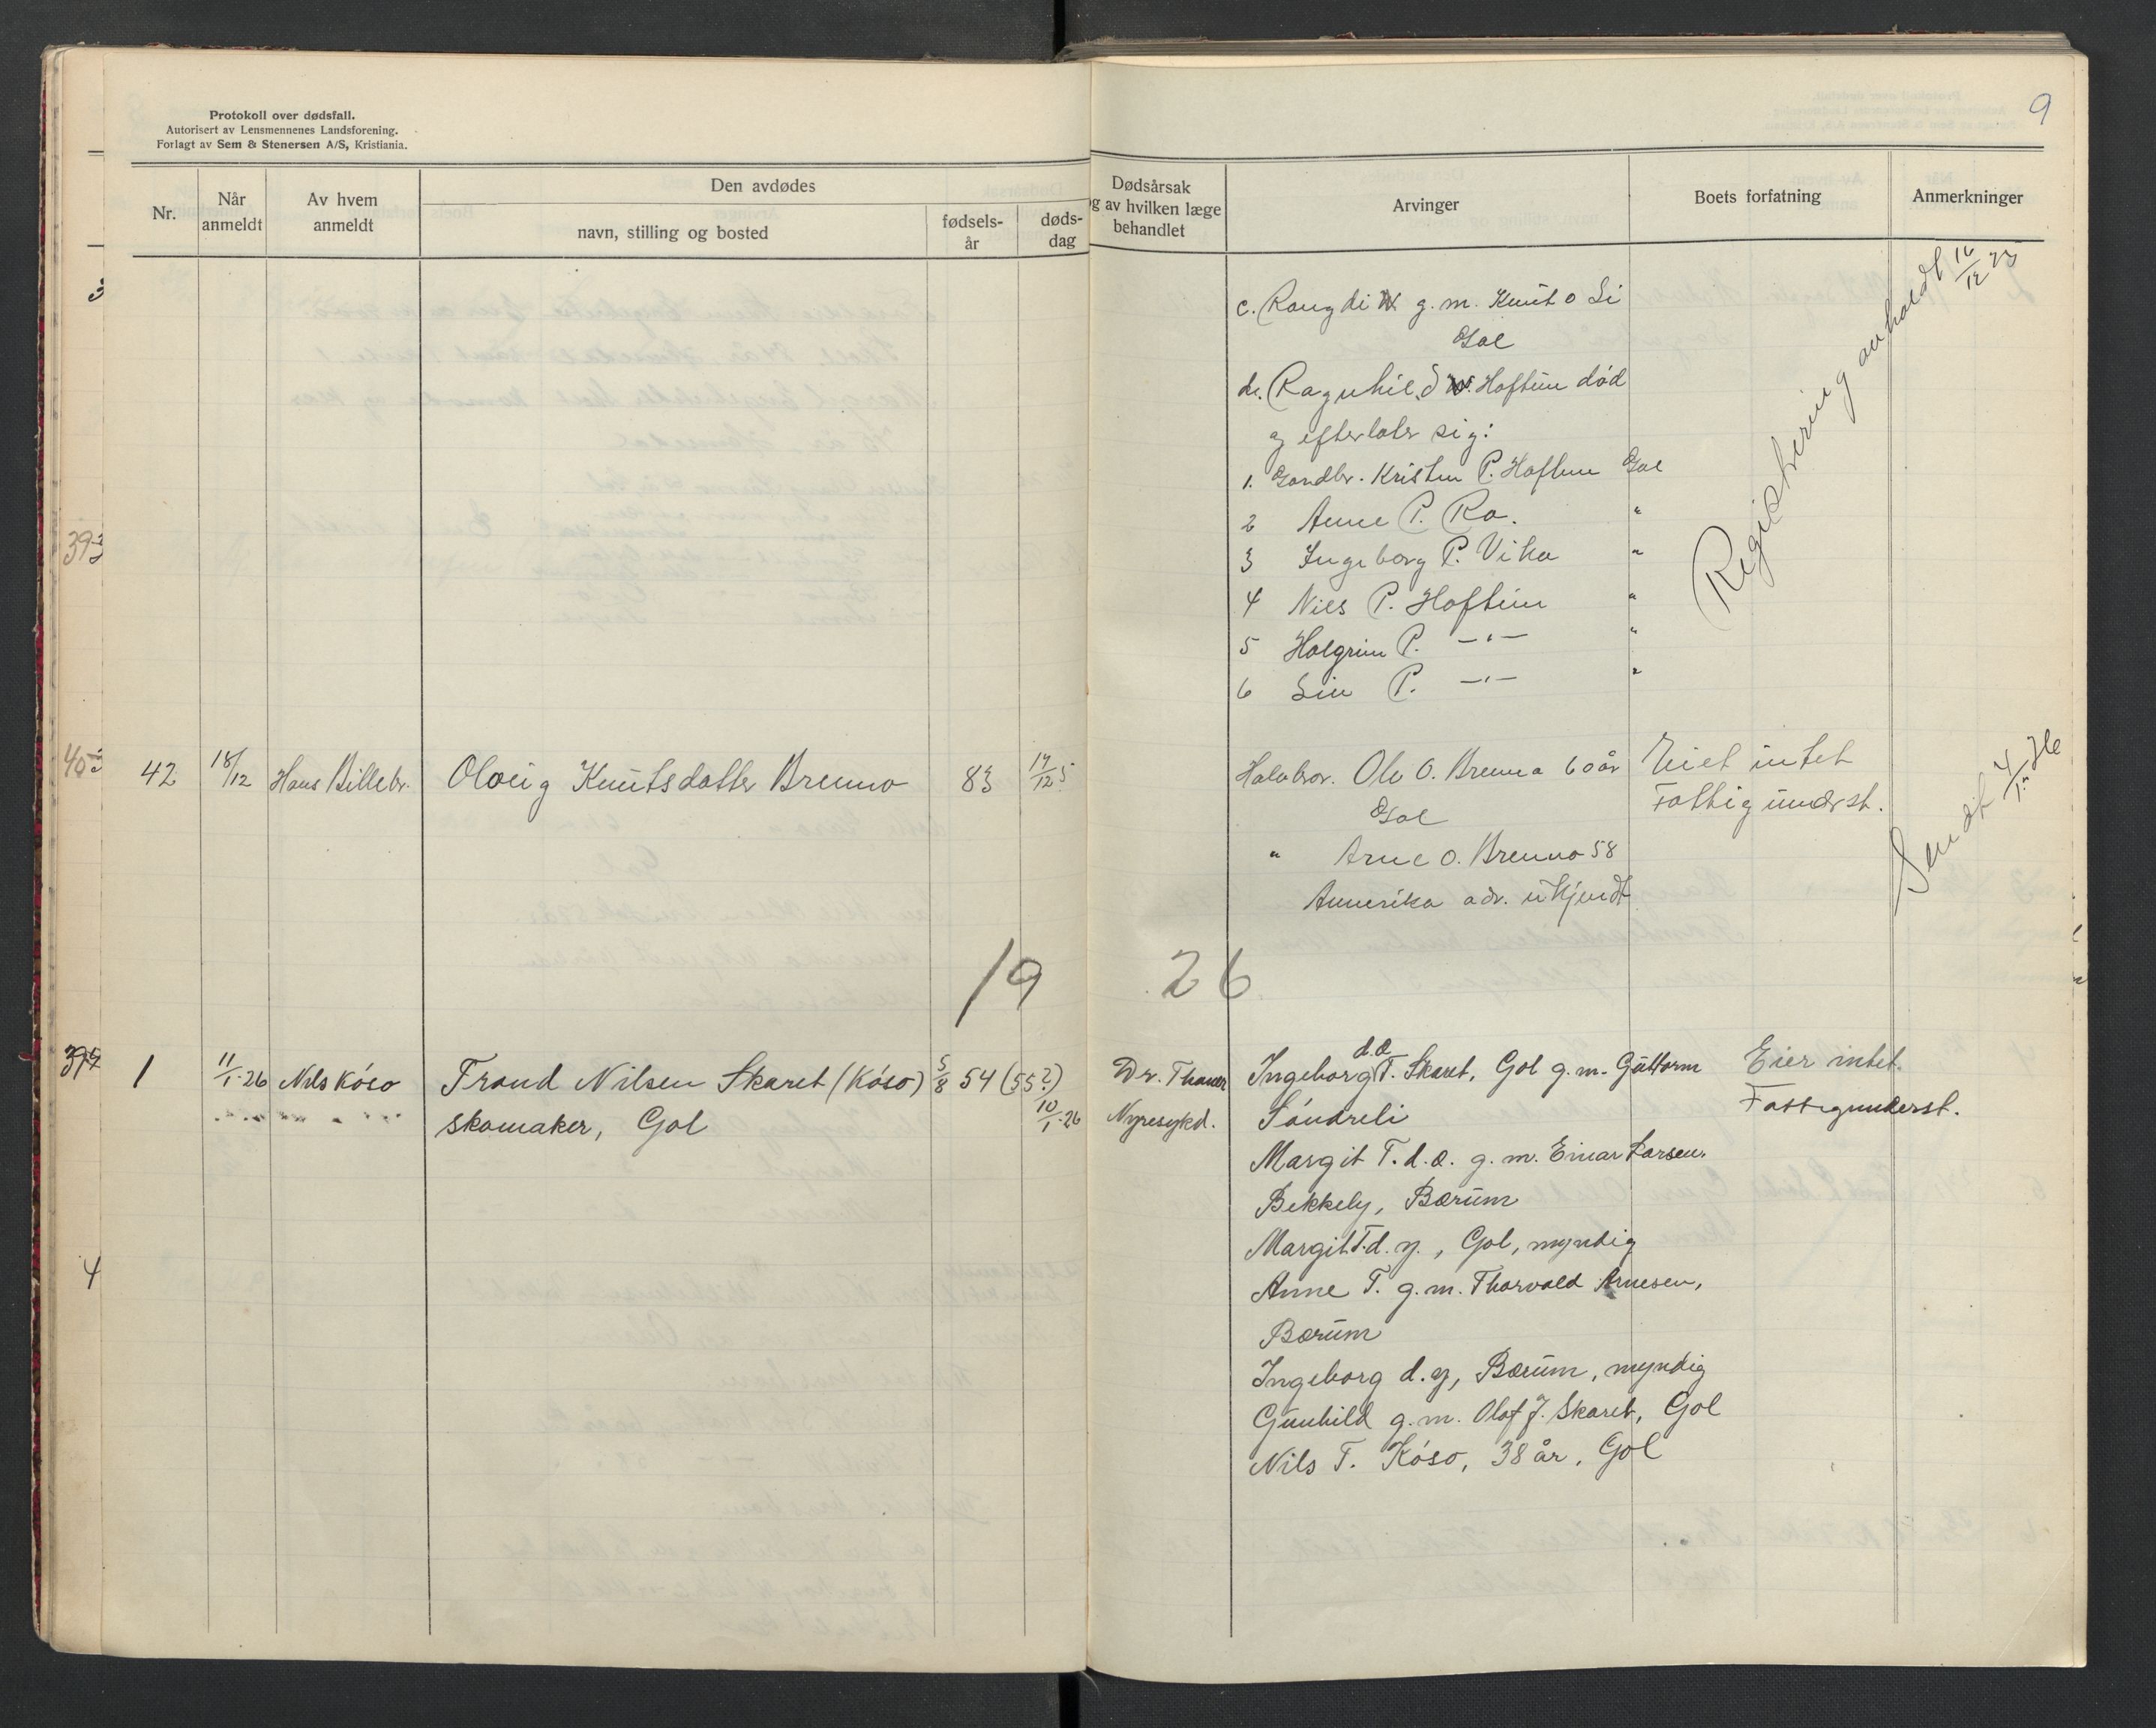 Protokoll over dødsfall.
Autorisert av Lensmennenes Landsforening.
Forlagt av Sem & Stenersen A/S, Kristiania.
9
Nr.
Når anmeldt
Av hvem anmeldt
Den avdødes
navn, stilling og bosted
fødsels-år
døds-dag
Dødsårsak
og av hvilken læge
behandlet
Arvinger
Boets forfatning
Anmerkninger
c. Rangdi g. m. Knut O Li
Gol
d. Ragnhild Haftun død
og efterlater sig:
1. Gardbr. Kristen P. Haftun Gol
2 Anne P. Ro. "
3 Ingeborg P. Vika "
4 Niels P. Haftun "
5 Halgrim P. —"— "
6 Liv P. —"— "
Registrering avholdt 16/12 25
42 18/12 Hans Billebr. Oloug Knutsdatter Brenno 83 14/12 5
Halvbror. Ole O. Brenna 60 år
Gol
" Arne O. Brenno 58
Amerika adr. ukjendt
Eiet intet
Fattigunderst.
Sendt 4/1
19 26
1 11/1-26 Nils Kóso Trond Nilsen Skaret (Kóso) 5/8 54 (55?)
skomaker, Gol 10/1-26
Dr. Thaner
Nyresykd.
Ingeborg T. d.æ. Skaret, Gol g.m. Guttorm
Sóndreli
Margit T. d.æ. g.m. Einar Larsen,
Bekkely, Bærum
Margit T. d.y., Gol, myndig
Anne T. g.m. Thorvald Arnesen,
Bærum
Ingeborg d.y, Bærum, myndig
Gunhild g.m. Olaf J. Skaret, Gol
Nils T. Kóso, 38 år, Gol
Eier intet.
Fattigunderst.
3
39
40
4